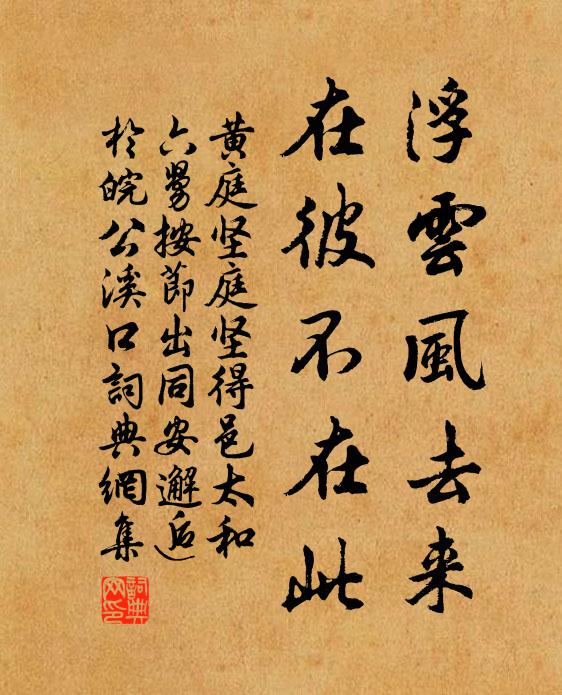 浮雲風去来
在彼不在此
黄庭坚庭坚得邑太和
六舅按節出同安邂逅
於皖公溪口詞典網集
詞典网印